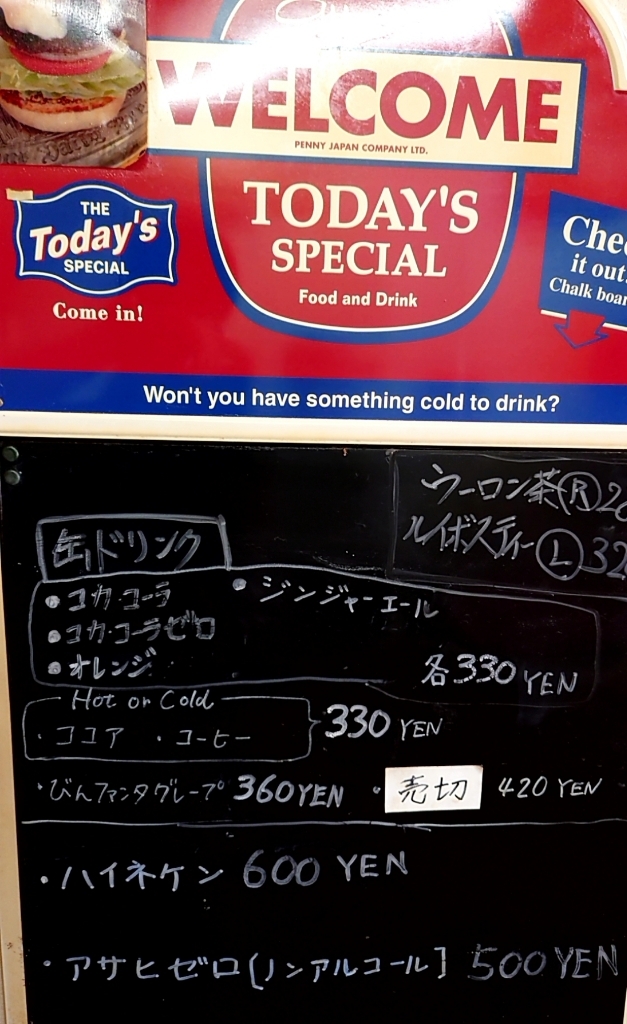 WELCOME
PENNY JAPAN COMPANY LTD.
TODAY'S
SPECIAL
Food and Drink
THE
Today's
SPECIAL
Come in!
it out
Chalk
Won't you have something cold to drink?
ウーロン茶Ⓡ
ルイボスティーⓁ
缶ドリンク
•コカ·コーラ •ジンジャーエール
•コカ·コーラゼロ
•オレンジ 各330YEN
Hot or Cold
·ココア ·コーヒー 330 YEN
·びんファンタグレープ 360YEN ·売切 420 YEN
·ハイネケン 600 YEN
·アサヒゼロ[ノンアルコール] 500YEN